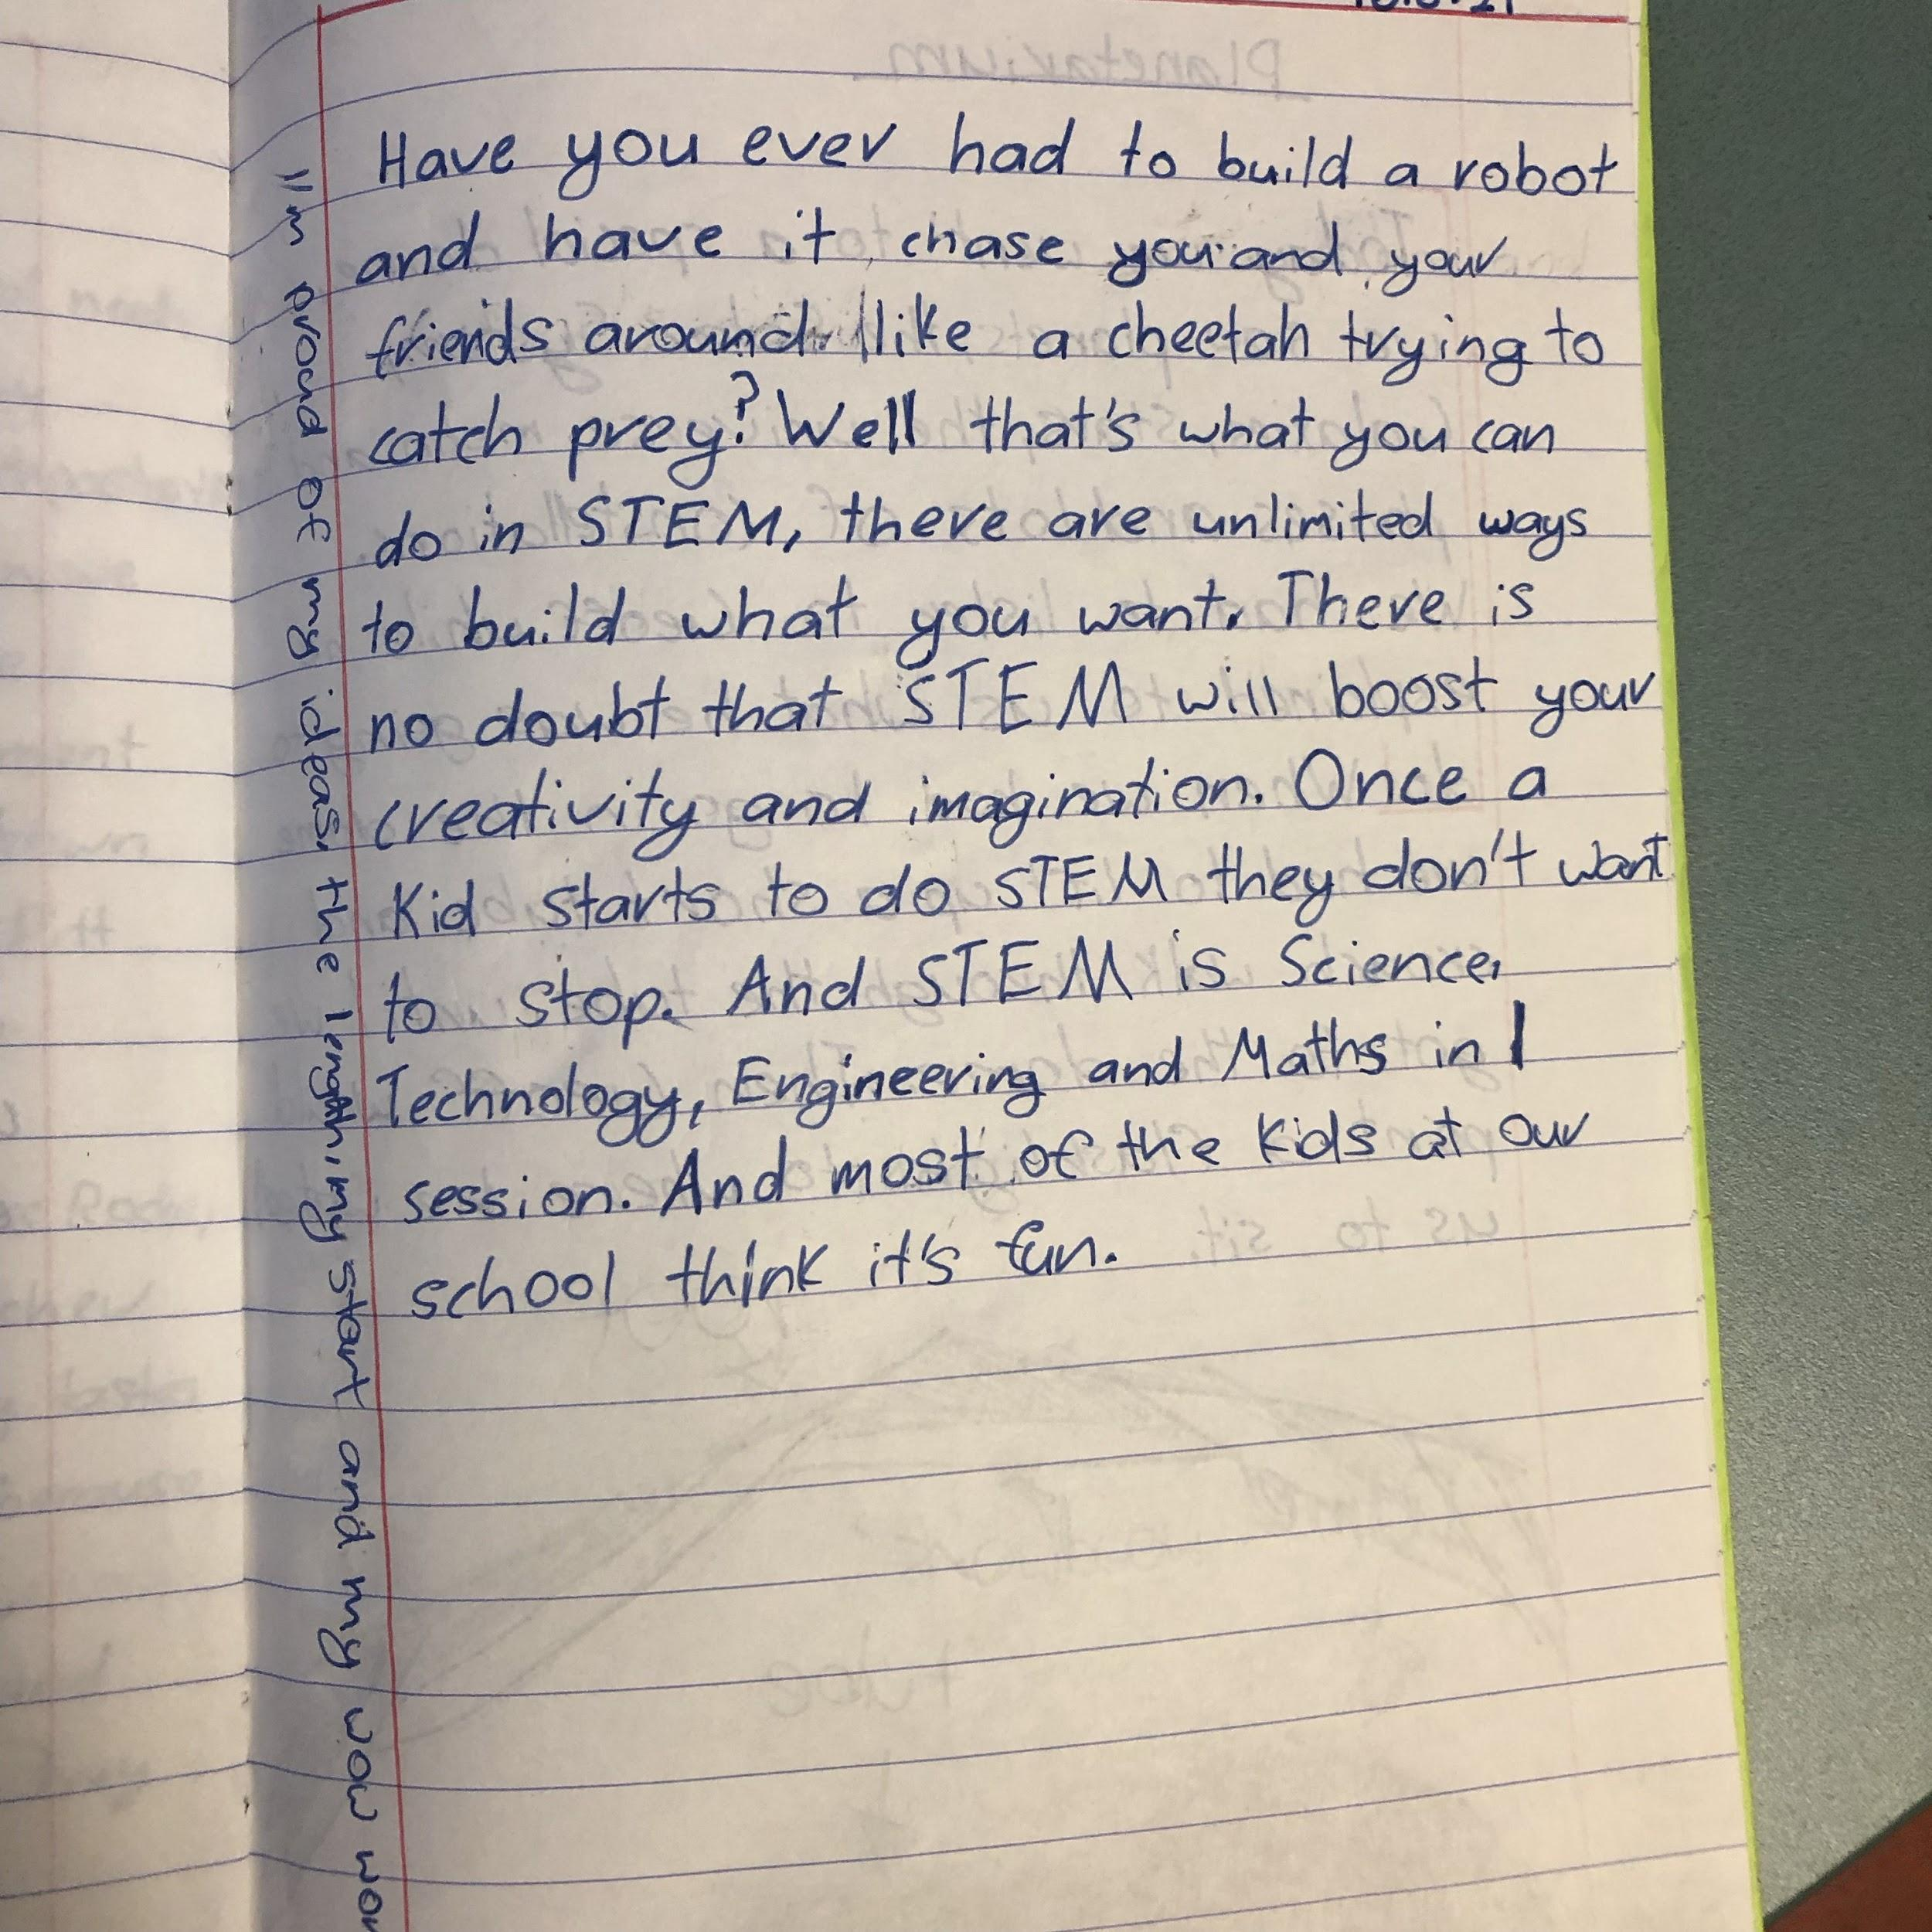 Have you ever had to build a robot
and have it chase you and your
friends around like a cheetah trying to
catch prey? Well that's what you can
do in STEM, there are unlimited ways
to build what you want. There is
no doubt that STEM will boost your
creativity and imagination. Once a
Kid starts to do STEM they don't want
to stop. And STEM is Science,
Technology, Engineering and Maths in 1
session. And most of the Kids at our
school think it's fun.
I'm proud of my ideas, the my start and my wow
Planetarium.
us to sit.